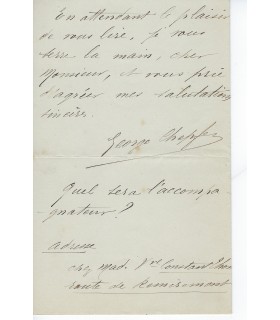 En attendant le plaisir
de vous lire, je vous
serre la main, cher
Monsieur, et vous prie
d'agréer mes salutations
sincères.
George Chepfer
Quel sera l'accompa-
gnateur?
adresse
chez Mad. Vve Constant
route de Remiremont